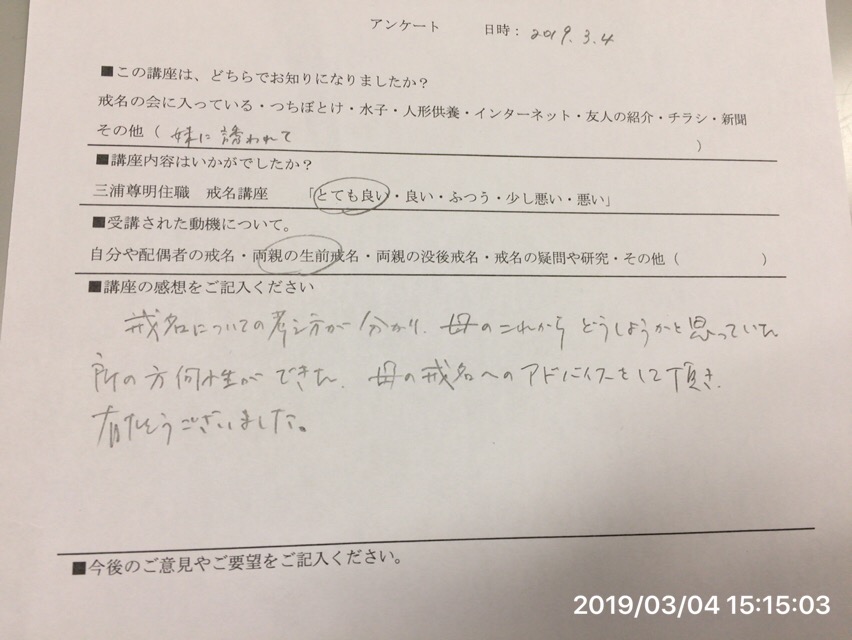 アンケート 日時： 2019.3.4
■この講座は、どちらでお知りになりましたか？
戒名の会に入っている・つちぼとけ・水子・人形供養・インターネット・友人の紹介・チラシ・新聞
その他（ 妹に誘われて ）
■講座内容はいかがでしたか？
三浦尊明住職 戒名講座 「とても良い・良い・ふつう・少し悪い・悪い」
■受講された動機について。
自分や配偶者の戒名・両親の生前戒名・両親の没後戒名・戒名の疑問や研究・その他（ ）
■講座の感想をご記入ください
戒名についての考え方が分かり、母のこれからどうしようかと思っていた
所の方向性ができた、母の戒名へのアドバイスをして頂き、
有難うございました。
■今後のご意見やご要望をご記入ください。
2019/03/04 15:15:03